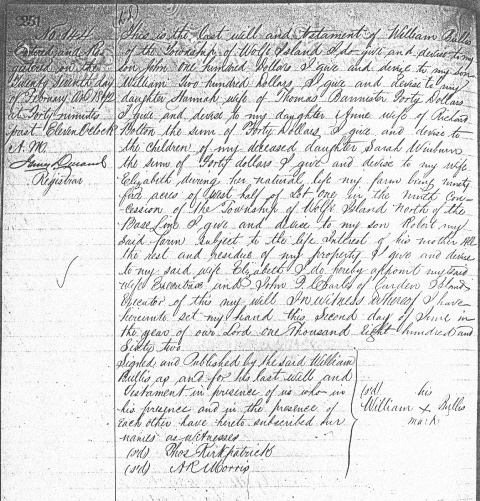 251
No. 144
Entered and Registered on the
Twenty Seventh day
of February
at Forty minutes
past Eleven Oclock
A.M.
Registrar
This is the last will and testament of William Bullis
of the Township of Wolfe Island I do give and devise to my
son John one hundred Dollars I give and devise to my son
William Two hundred Dollars, I give and devise to my
daughter Hannah wife of Thomas Bannister Forty Dollars
I give and devise to my daughter Anne wife of Richard
Bolton the sum of Forty Dollars, I give and devise to
the children of my deceased daughter Sarah
the sum of Forty dollars I give and devise to my wife
Elizabeth during her natural life my farm being ninety
five acres of West half of Lot one in the Ninth Con-
cession of the Township of Wolfe Island North of the
Base Line I give and devise to my son Robert my
Said farm subject to the life Interest of his mother All
the rest and residue of my property I give and devise
to my said wife Elizabeth I do hereby appoint my said
wife Executrix and John P. of Garden Island
Executor of this my will In witness whereof I have
hereunto set my hand this Second day of June in
the year of our Lord one Thousand eight hundred and
Sixty two
Signed and Published by the said William
Bullis as and for his last will and
testament in presence of us who in
his presence and in the presence of
each other have hereto subscribed our
names as witnesses
(sd) Thos Kirkpatrick
(sd) A R Morris
(sd) his
William x Bullis
mark